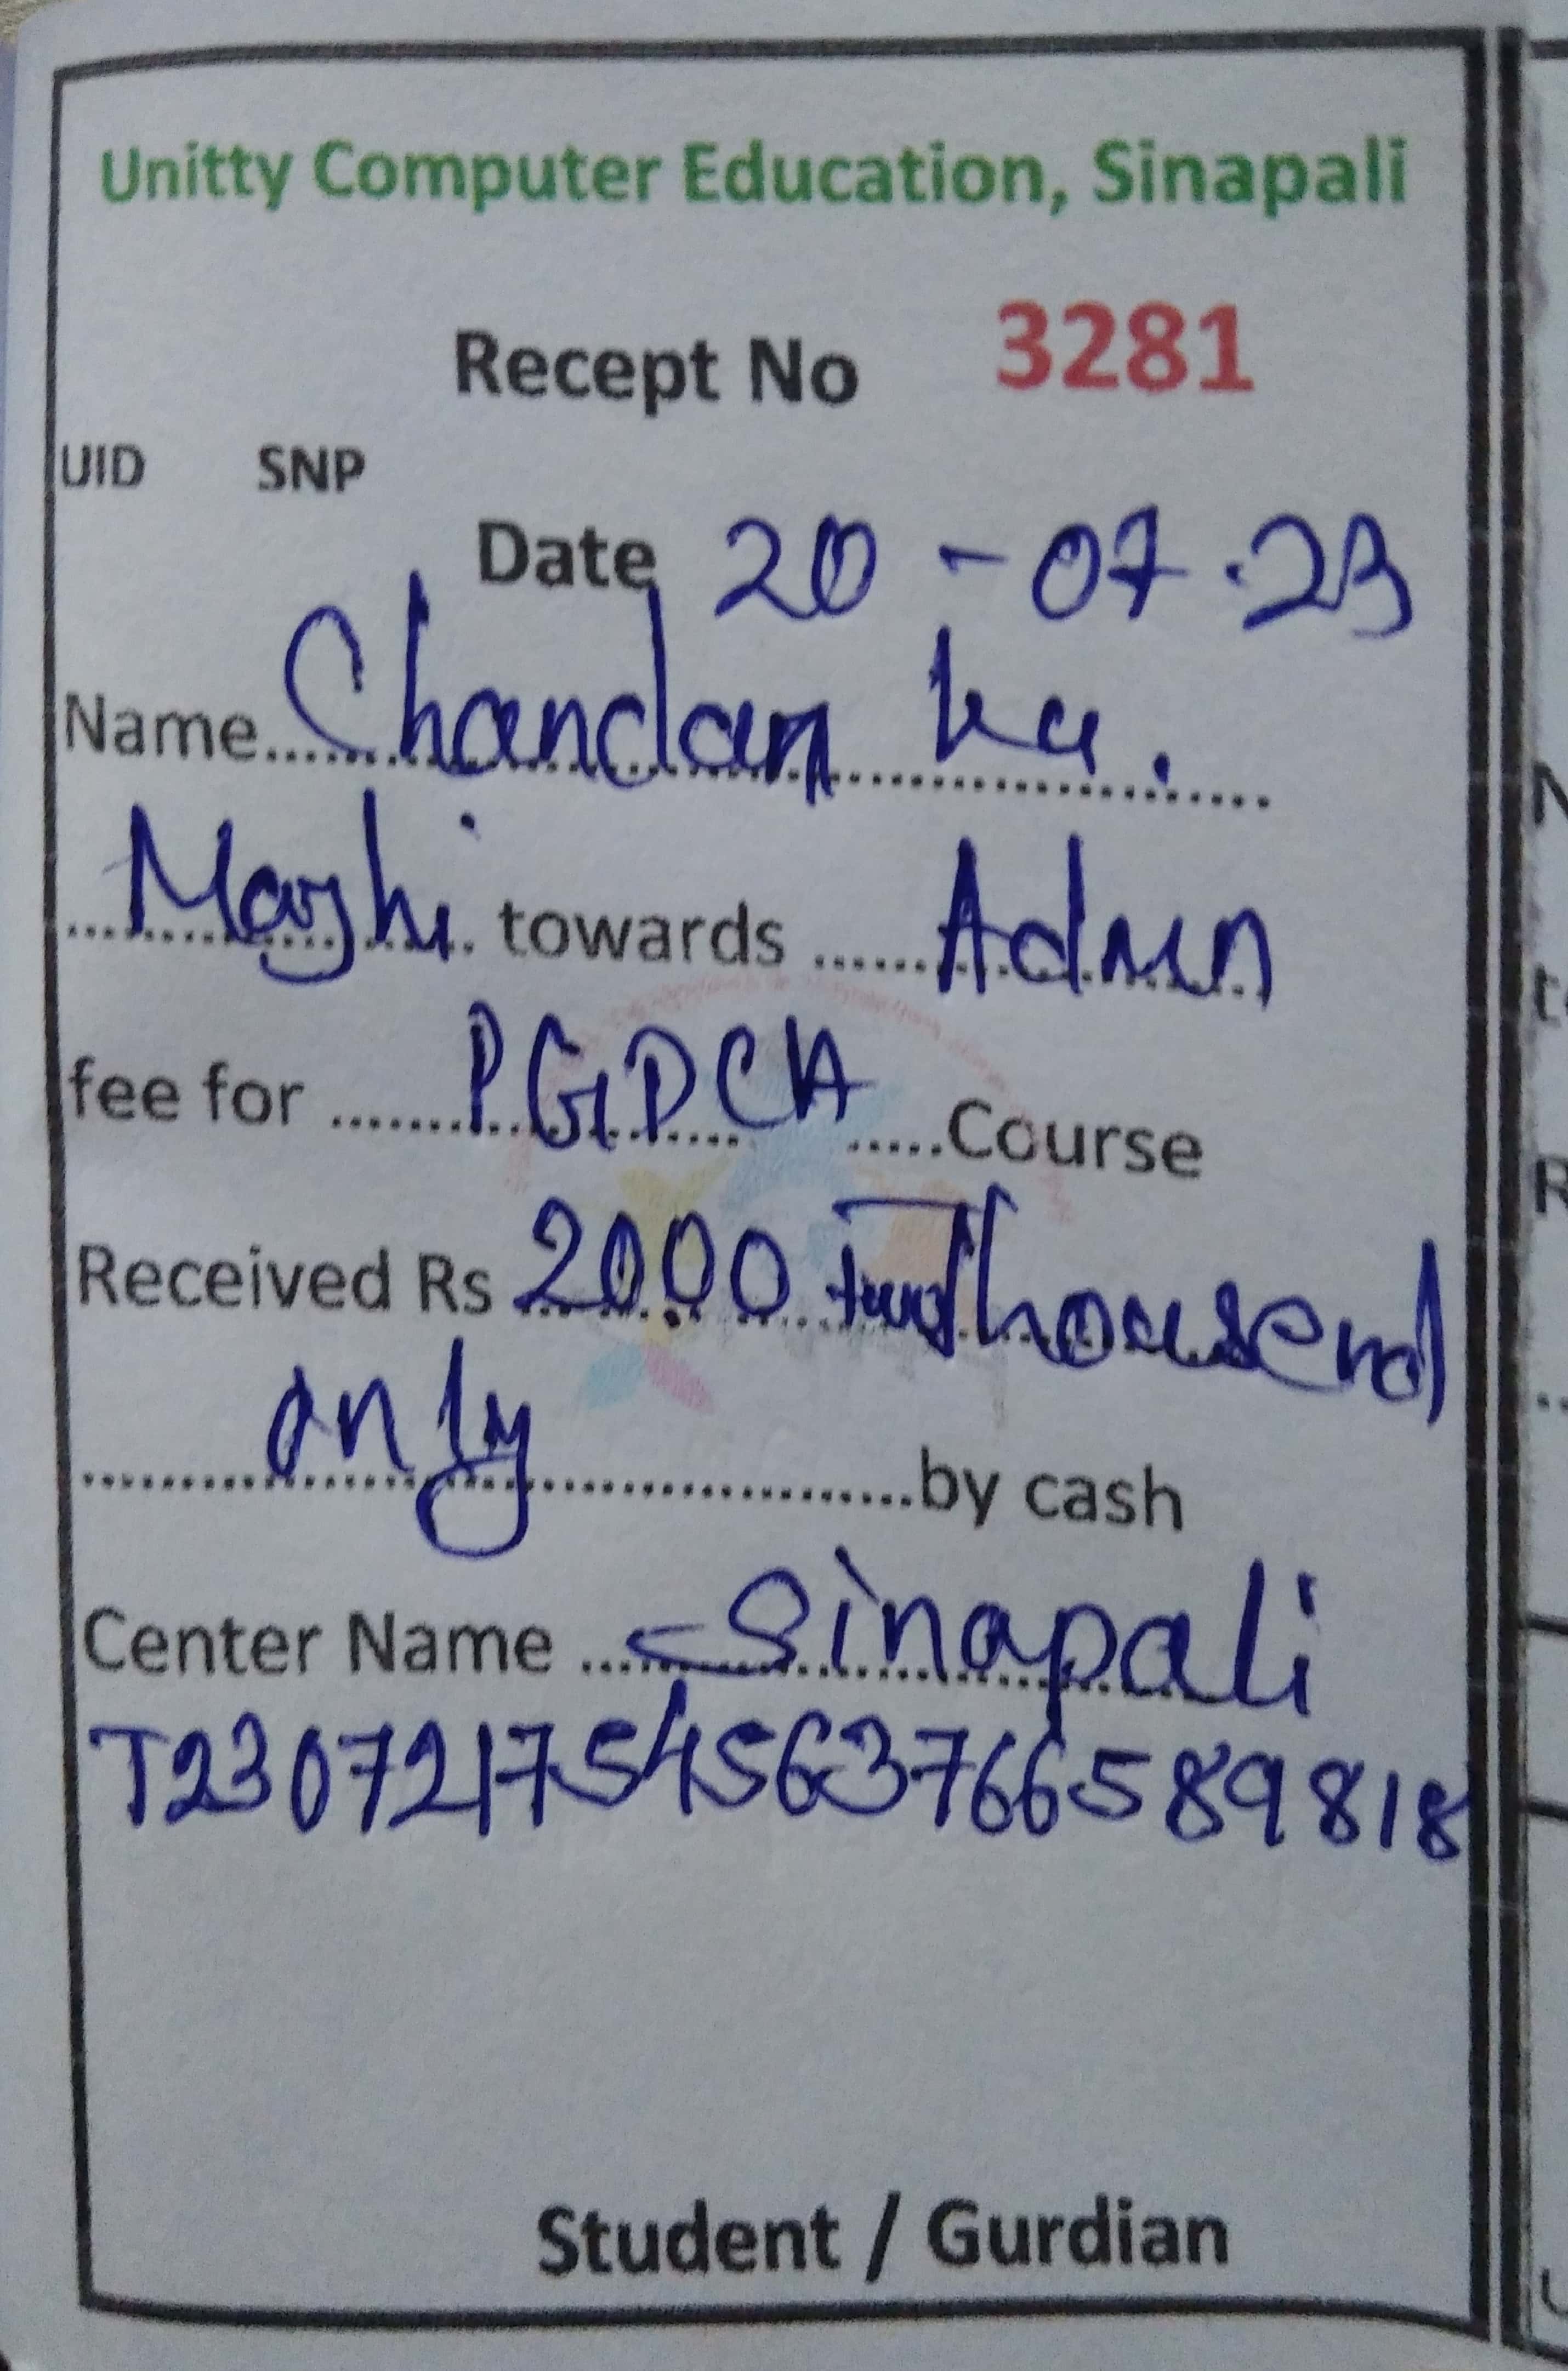 Unitty Computer Education, Sinapali
Recept No 3281
UID SNP
Date 20-07-23
Name Chandan ku.
Majhi towards Admn
fee for PGDCA Course
Received Rs 2000 two Thousend
only by cash
Center Name Sinapali
T230721754563766589818
Student / Gurdian